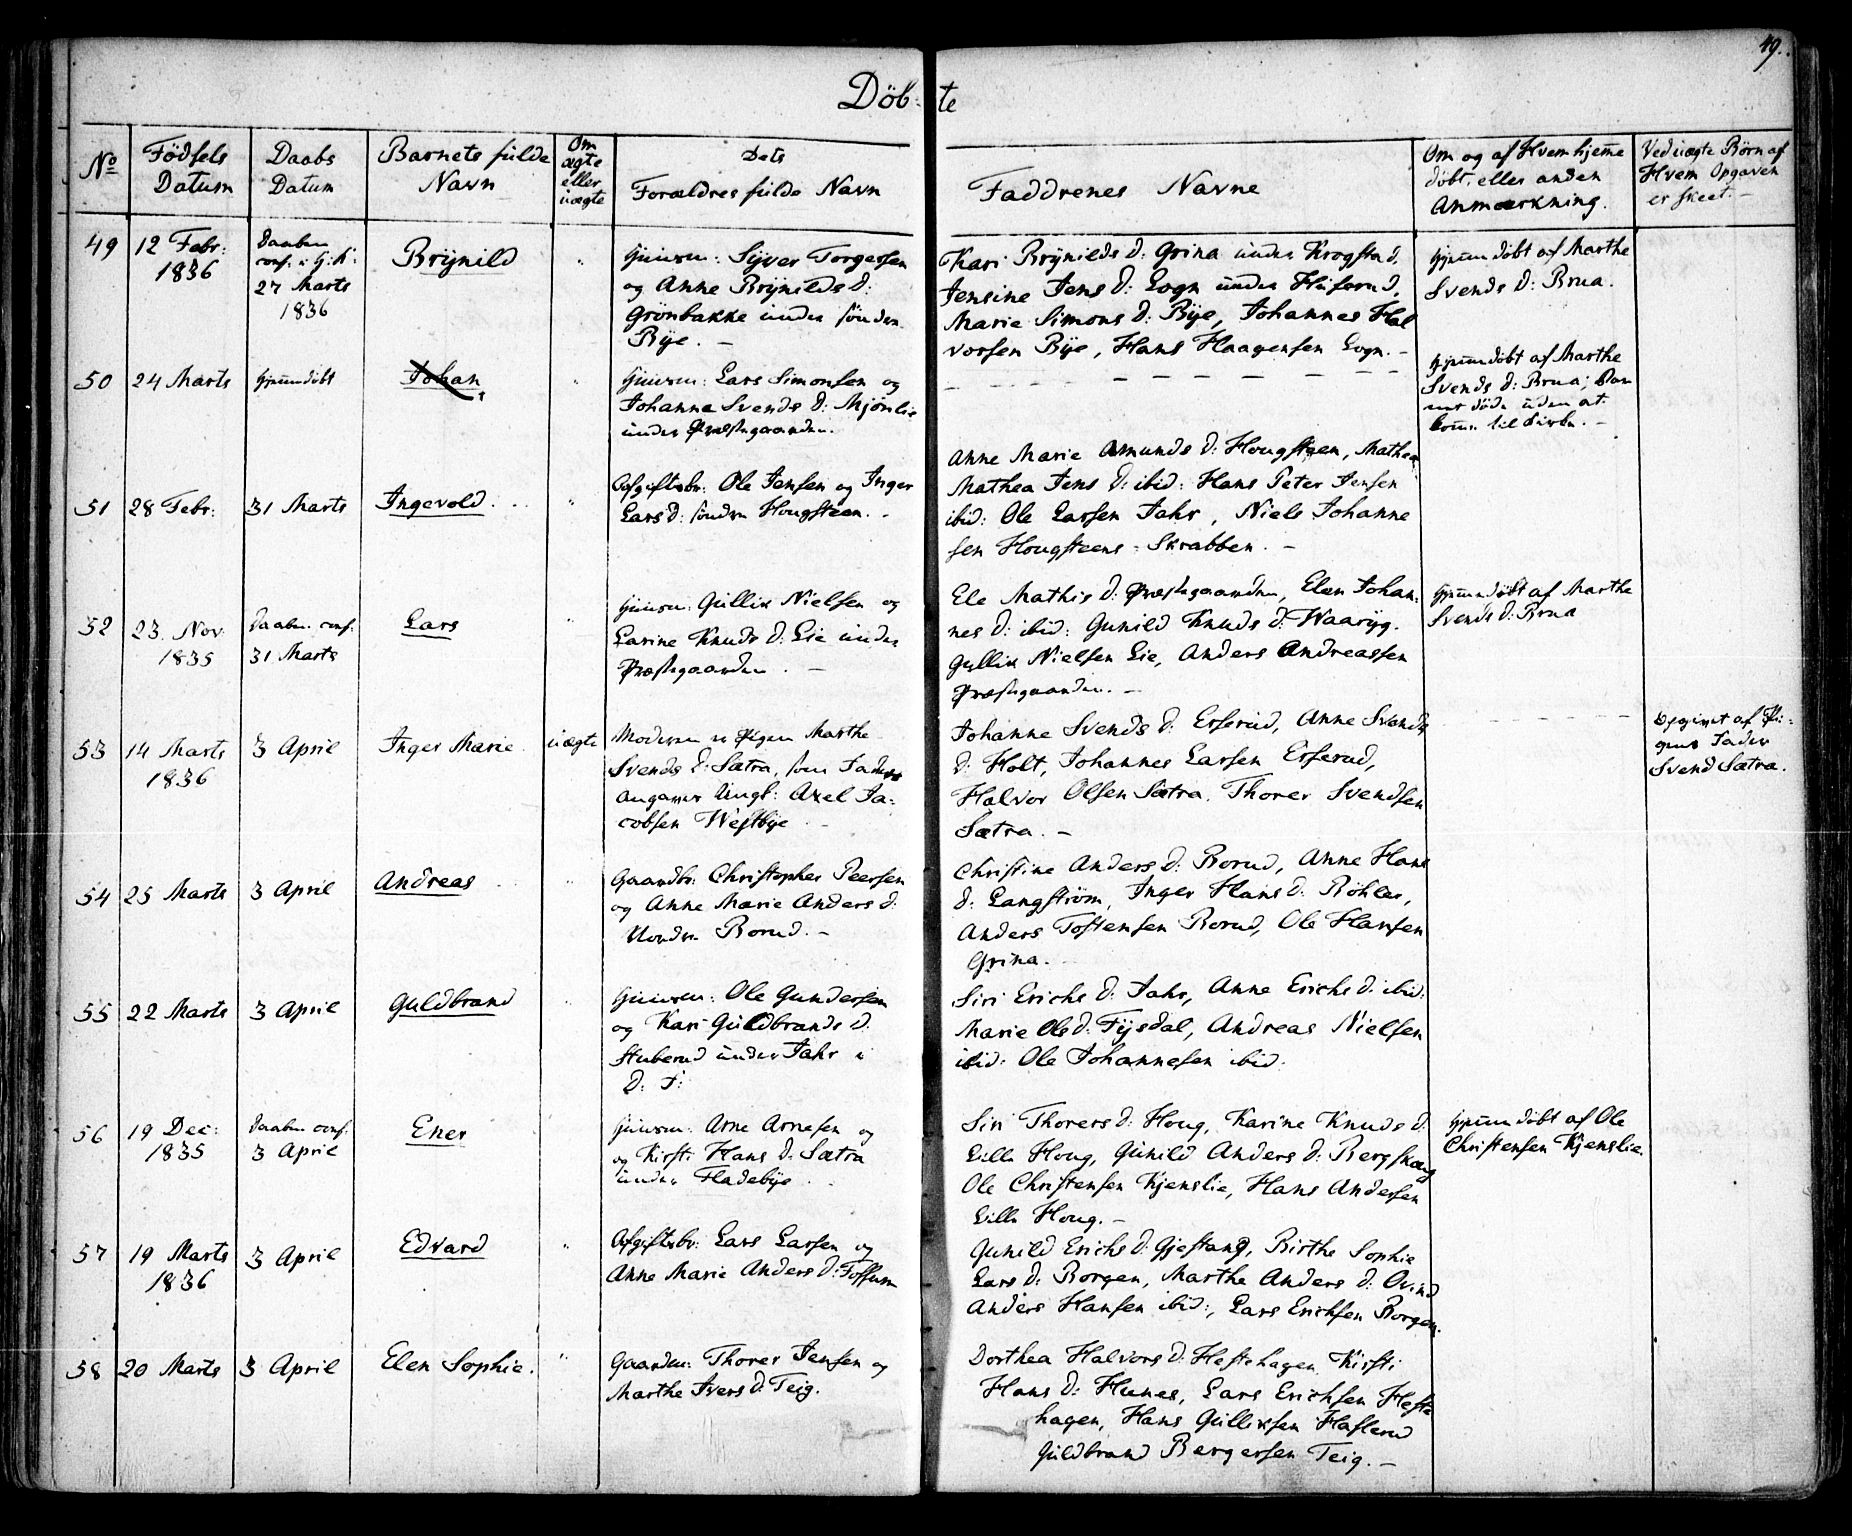 49.
Döb-te
No
Födsels
Datum
Daabs
Datum
Barnets fulde
Navn
Om
ægte
eller
uægte
Dets
Forældres fulde Navn
Faddrenes Navne
Om og af Hvem hjeme
döbt, eller anden
Anmærkning.
Ved uægte Börn af
Hvem Opgaven
er skeet.-
49
12 Febr:
1836
Daaben
conf. i G: K:
27 Marts
1836
Brynild
"
Huusm: Syver Torgersen
og Anne Brynilds D:
Grönbakke under sönden
Bye. -
Kari Brynilds d: Grina under Krogstad,
Jensine Jens D: Sogn under Huserud,
Marie Simons D: Bye, Johannes Hal
vorsen Bye, Hans Haagensen Sogn. -
hjemmedöbt af Marthe
Svends D: Brua.
50
24 Marts
hjemmedöbt
Johan
"
Huusm: Lars Simonsen og
Johanne Svends D: Mjönlie
under Præstegaarden.
hjemmedöbt af Marthe
Svends D: Brua; Bar
net döde uden at
komme til Kirke. -
51
28 Febr:
31 Marts
Ingevold.
"
Afgiftsbr: Ole Jensen og Inger
Lars D: sönden Hougsteen. -
Anne Marie Amunds D: Hougsteen, Mathea
Mathea Jens D: ibid: Hans Peter Jensen
ibid: Ole Larsen Jahr, Niels Johanne
sen Hougsteens-Skrabben. -
52
23. Nov:
1835
Daaben conf:
31 Marts
Lars
"
Huusm: Gullik Nielsen og
Larine Knuds D: Lie under
Præstegaarden. -
Ele Mathis D: Præstegaarden, Elen Johan:
nes D: ibid: Gunild Knuds D: Waaryg.
Gullik Nielsen Lie, Anders Andreassen
Præstegaarden. -
hjemmedöbt af Marthe
Svends D: Brua
53
14 Marts
1836
3 April
Inger Marie.
uægte
Moderen er Pigen Marthe
Svends D: Sætra, som Fader
angaves Ungk: Axel Ja:
cobsen Westbye
Johanne Svends D: Erserud, Anne Svends
D: Holt, Johannes Larsen Erserud,
Halvor Olsen Sætra. Thorer Svendsen
Sætra. -
Opgivet af Pi-
gens Fader
Svend Sætra.
54
25 Marts
3 April
Andreas
"
Gaardbr: Christopher Peersen
og Anne Marie Anders D:
Norden Borud. -
Christine Anders D: Borud, Anne Hans
D: Langström, Inger Hans D: Röhler,
Anders Tostensen Borud, Ole Hansen
Grina.
55
22 Marts
3 April
Guldbrand
"
Huusm: Ole Gundersen
og Kari Guldbrands D.
Stuberud under Jahr i
D: F:
Siri Erichs D: Jahr, Anne Erichs D: ibid:
Marie Ols D: Fysdal, Andreas Nielsen
ibid: Ole Johannesen ibid:
56
19 Dec:
1835
Daaben conf:
3 April
Ener
Huusm: Arne Arnesen og
og Kirsti Hans D: Sætra
under Fladebye
Siri Thorers D: Houg, Karine Knuds D:
Lille Houg, Gunild Anders D: Bergskaug
Ole Christensen Kjenslie, Hans Andersen
Lille Houg. -
hjemmedöbt af Ole
Christensen Kjenslie.
57
19 Marts
1836
3 April
Edvard
"
Afgiftsbr: Lars Larsen og
Anne Marie Anders D: Fossum
Gunild Erichs D: Gjestang, Birthe Sophie
Lars D: Borgen, Marthe Anders D: Ovind
Anders Hansen ibid:, Lars Erichsen Borgen.
58
20 Marts
3 April
Elen Sophie.
"
Gaardm: Thorer Jensen og
Marthe Ivers D: Teig.
Dorthea Halvors D: Hestehagen, Kirsti
Hans D: Hunes, Lars Erichsen Heste
hagen, Hans Gulliksen Haslerud
Guldbrand Bergersen Teig. -